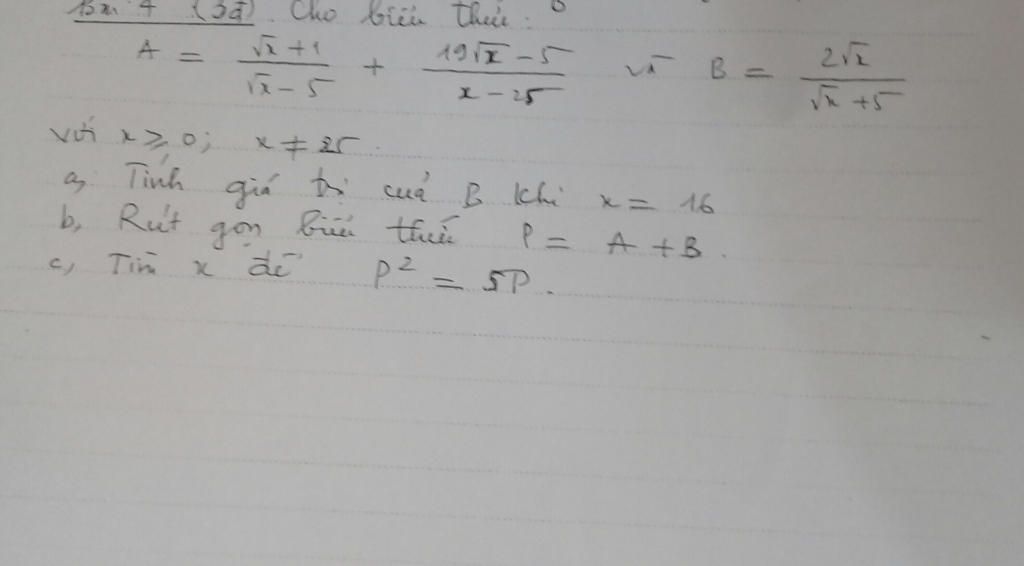 Bài 4 (3đ). Cho biểu thức:
A = \frac{\sqrt{x}+1}{\sqrt{x}-5} + \frac{19\sqrt{x}-5}{x-25} và B = \frac{2\sqrt{x}}{\sqrt{x}+5}
với x ≥ 0; x ≠ 25.
a, Tính giá trị của B khi x = 16
b, Rút gọn biểu thức P = A + B.
c, Tìm x để P² = 5P.